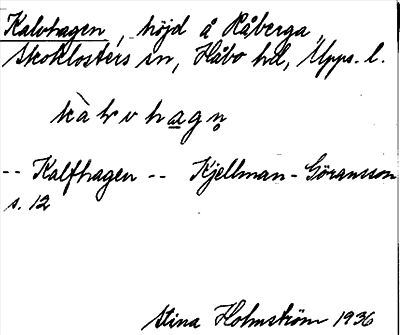 Kalvhagen, höjd å Råberga,
Skoklosters sn, Håbo hd, Upps. l.
kàlvhagn̥
-- Kalfhagen -- Kjellman-Göransson
s. 12
Stina Holmström 1936